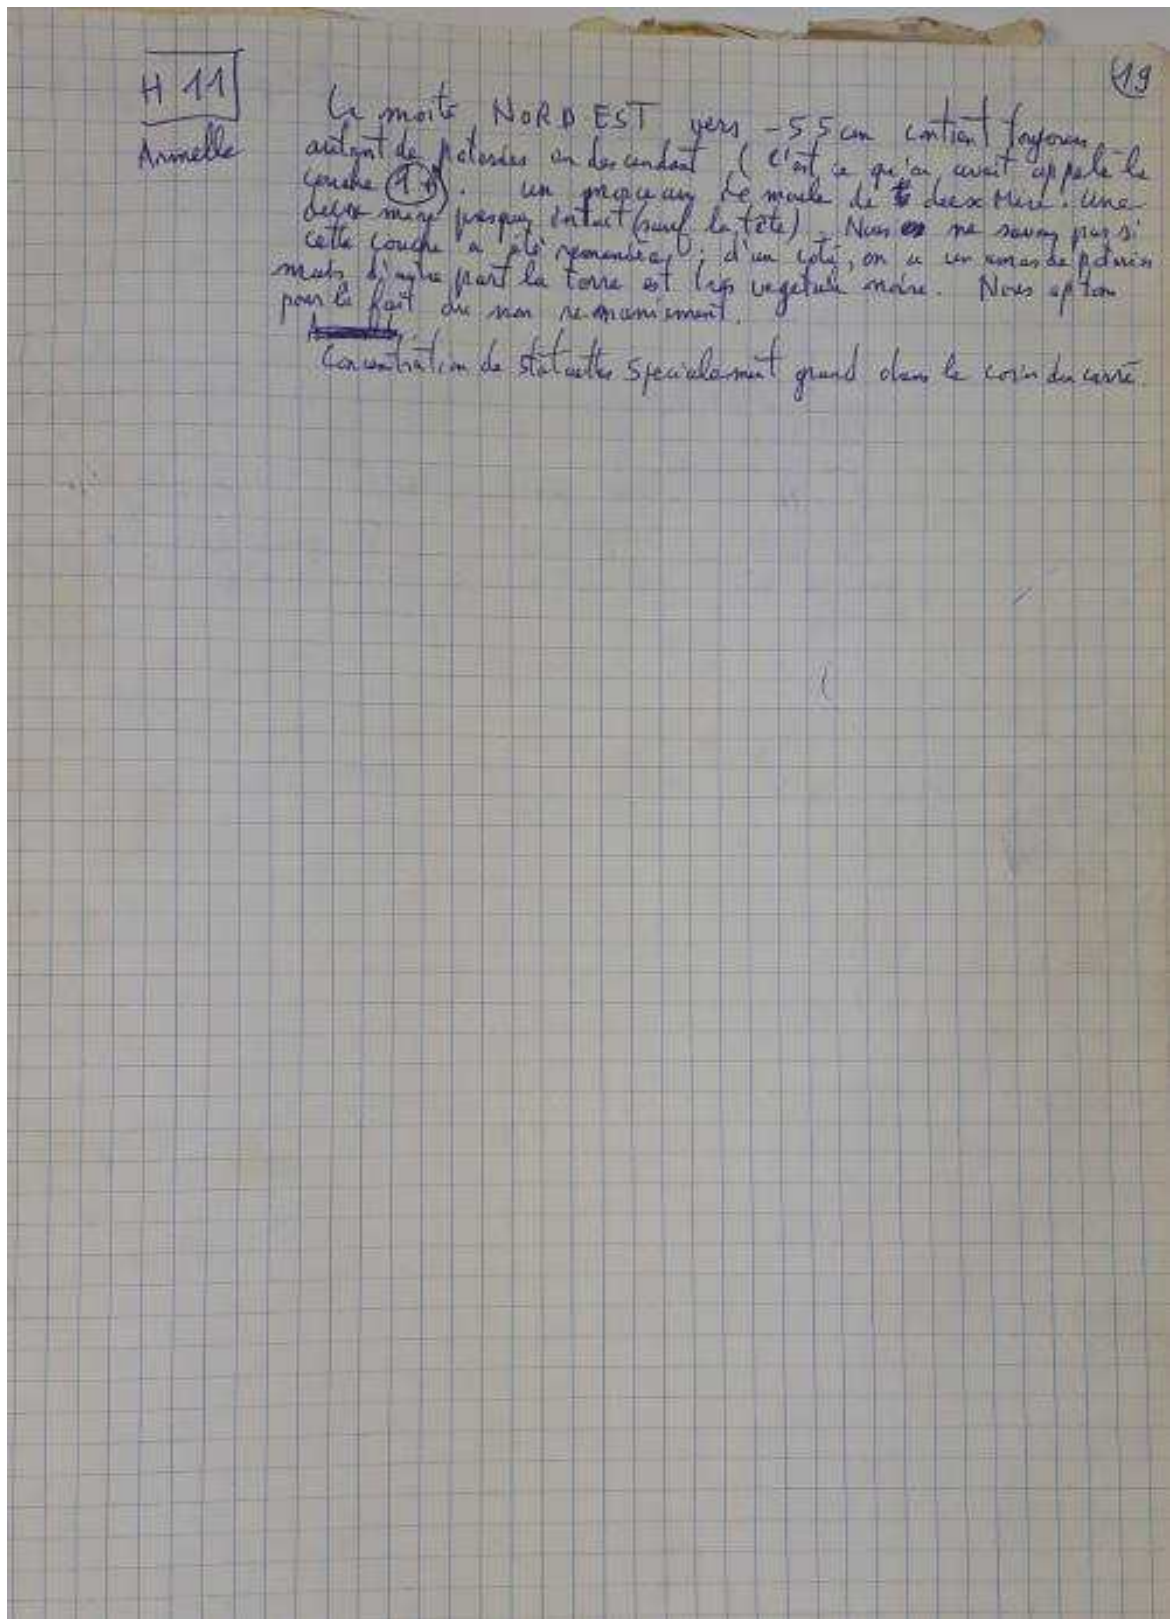 19
H 11
Armelle
La moité NORD EST vers -55 cm contient toujours
autant de poteries en descendant (c'est ce qu'on avait appelé la
couche). un morceau de moule de deese Mere. Une
mere presque intact (sauf la tête). Nous ne savons pas si
cette couche a été remaniée; d'un coté, on a un amas de
mais d'autre part la terre est tres vegetale noire. Nous optons
pour le fait du non remaniement.
Concentration de statuettes specialement grand dans le coin du carré.